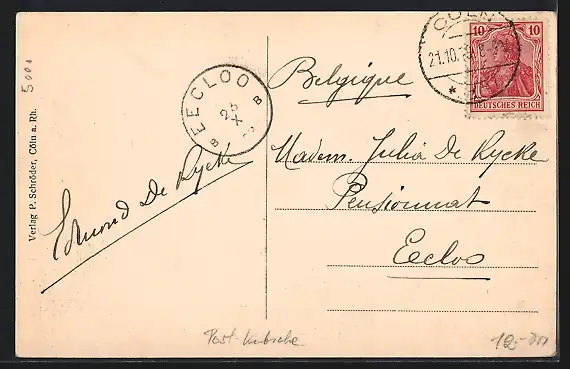 5000
Verlag P. Schröder, Cöln a. Rh.
EECLOO
25
X
B B
CÖLN
21.10.
10 10
DEUTSCHES REICH
Belgique
Madem. Julia De Rycke
Pensionnat
Eecloo
Edmond De Rycke
Post-kutsche
12.-